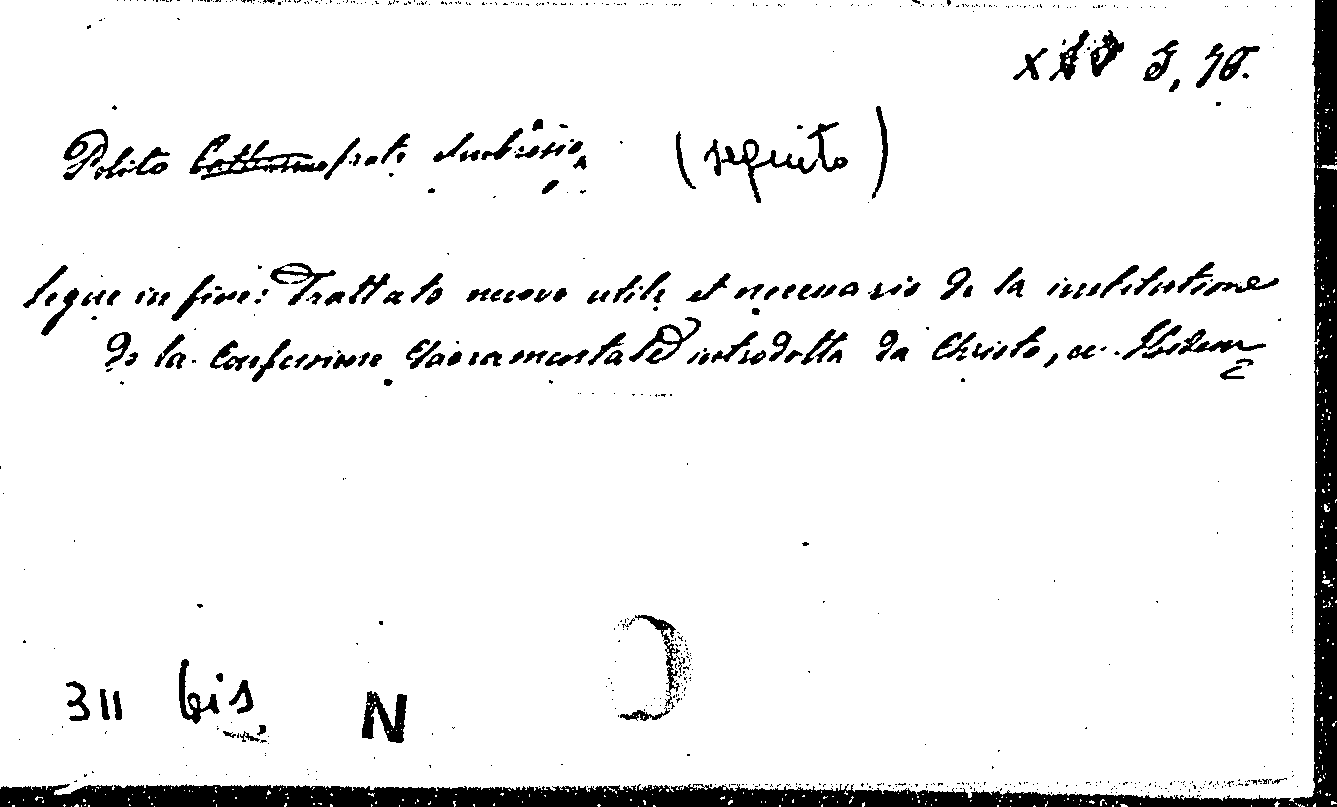 Polito frate Ambrosio, (seguito)
Segue in fine: Trattato nuovo utile et necessario de la institutione
de la Confessione Sacramentale introdotta da Christo, ec.
311 bis N